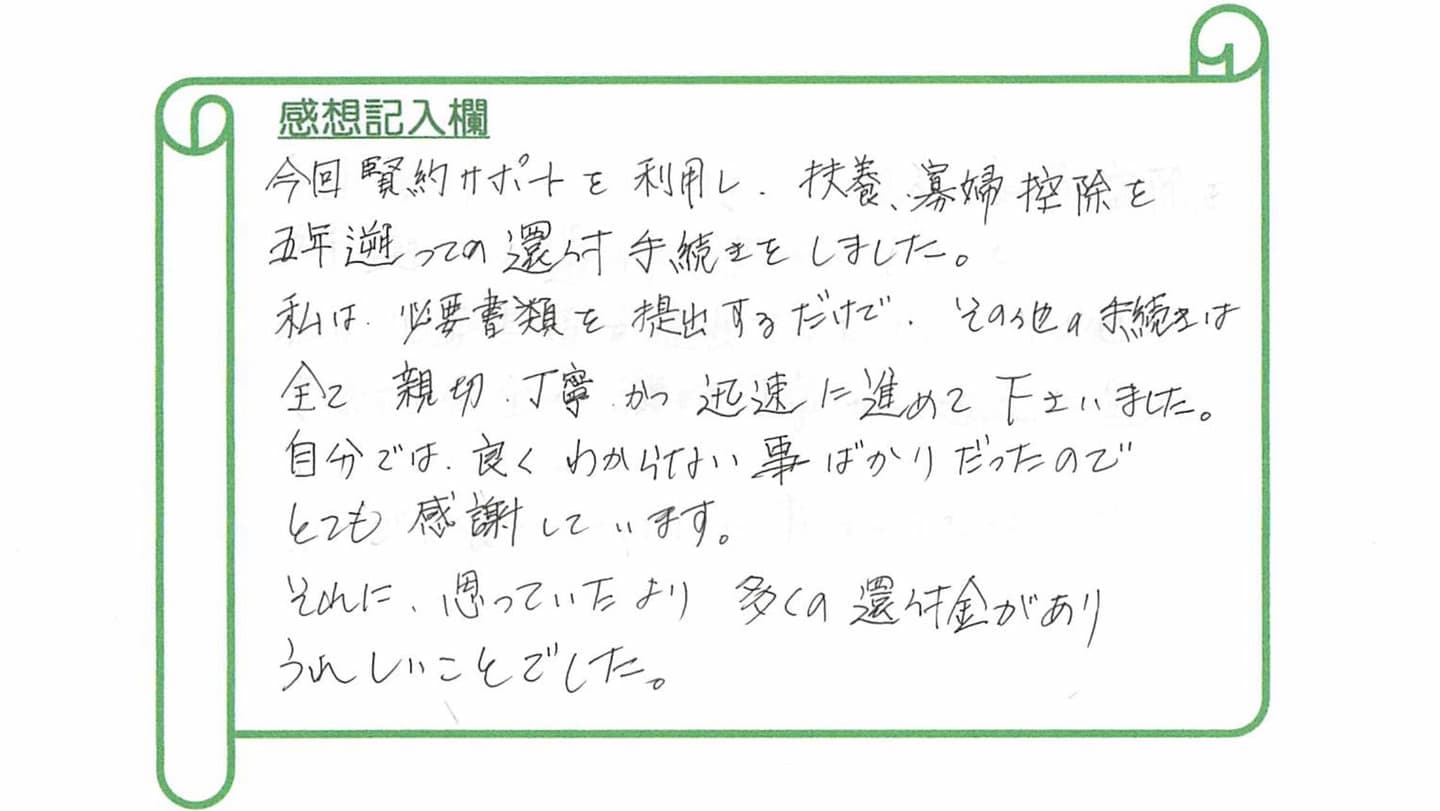 感想記入欄
今回賢約サポートを利用し、扶養、寡婦控除を
五年遡っての還付手続きをしました。
私は、必要書類を提出するだけで、その他の手続きは
全て親切、丁寧、かつ迅速に進めて下さいました。
自分では、良くわからない事ばかりだったので
とても感謝しています。
それに、思っていたより多くの還付金があり
うれしいことでした。